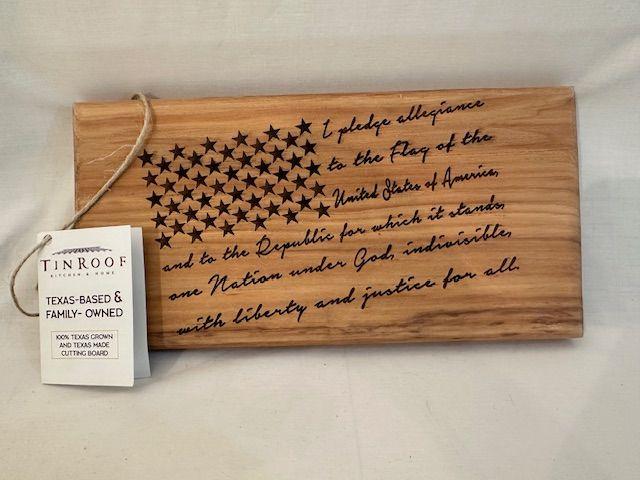 I pledge allegiance
to the Flag of the
United States of America,
and to the Republic for which it stands,
one Nation under God, indivisible,
with liberty and justice for all.
TINROOF
KITCHEN & HOME
TEXAS-BASED &
FAMILY- OWNED
100% TEXAS GROWN
AND TEXAS MADE
CUTTING BOARD